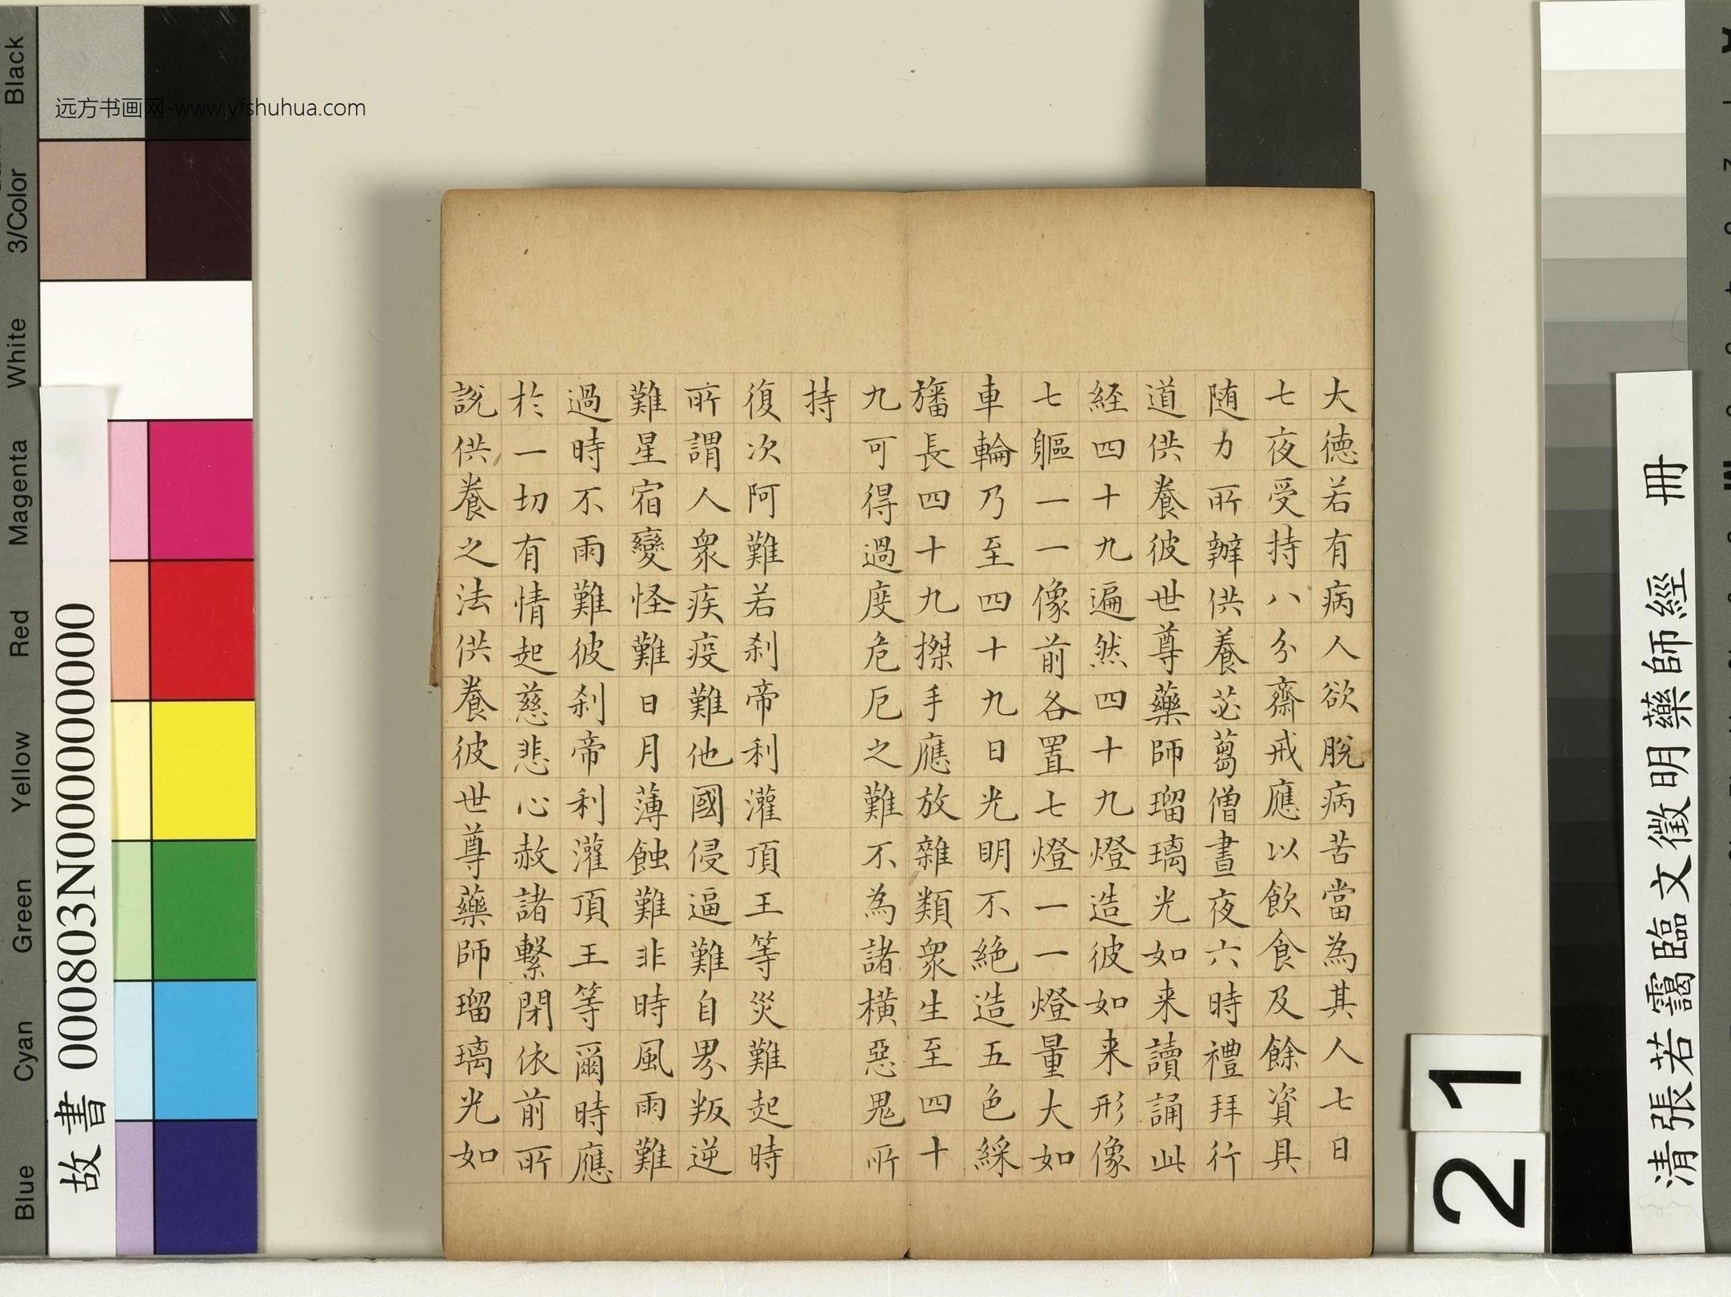 大德若有病人欲脫病苦當為其人七日
七夜受持八分齋戒應以飲食及餘資具
随力所辦供養苾蒭僧晝夜六時禮拜行
道供養彼世尊藥師瑠璃光如来讀誦此
経四十九遍然四十九燈造彼如来形像
七軀一一像前各置七燈一一燈量大如
車輪乃至四十九日光明不絶造五色綵
旛長四十九搩手應放雜類衆生至四十
九可得過度危厄之難不為諸橫惡鬼所
持
復次阿難若刹帝利灌頂王等災難起時
所謂人衆疾疫難他國侵逼難自界叛逆
難星宿變怪難日月薄蝕難非時風雨難
過時不雨難彼刹帝利灌頂王等爾時應
於一切有情起慈悲心赦諸繫閉依前所
說供養之法供養彼世尊藥師瑠璃光如
远方书画网-www.yfshuhua.com
Black
3/Color
White
Magenta
Red
Yellow
Green
Cyan
Blue
故書 000803N000000000
清張若靄臨文徵明藥師經 冊
21